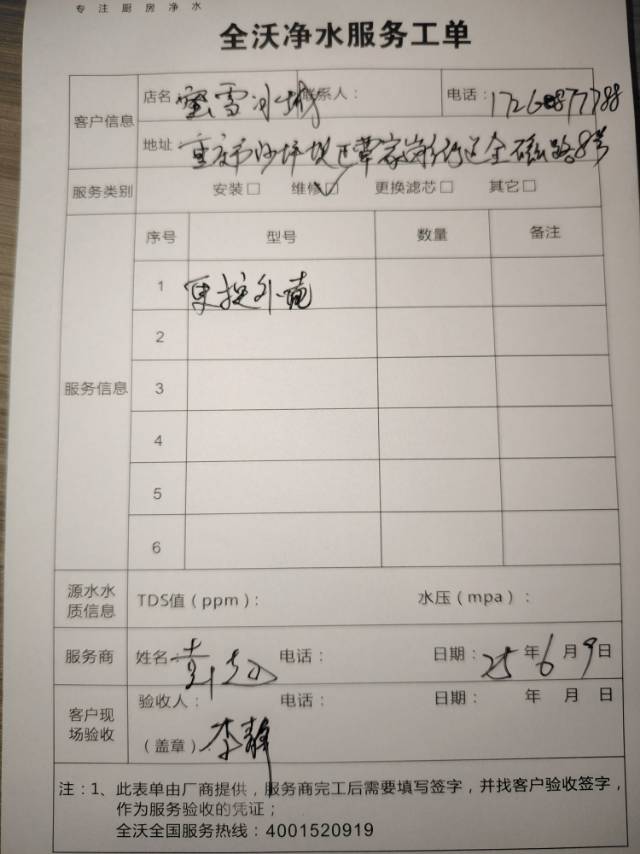 专注厨房净水
全沃净水服务工单
客户信息
店名 蜜雪冰城 联系人： 电话：
地址 重庆市沙坪坝区覃家岗街道全磁路8号
服务类别 安装□ 维修☑ 更换滤芯□ 其它□
服务信息
序号 型号 数量 备注
1 更换外壳
2
3
4
5
6
源水水质信息 TDS值（ppm）： 水压（mpa）：
服务商 姓名 电话： 日期：25年6月9日
客户现场验收
验收人： 电话： 日期： 年 月 日
（盖章） 李静
注：1、此表单由厂商提供，服务商完工后需要填写签字，并找客户验收签字，
作为服务验收的凭证；
全沃全国服务热线：4001520919